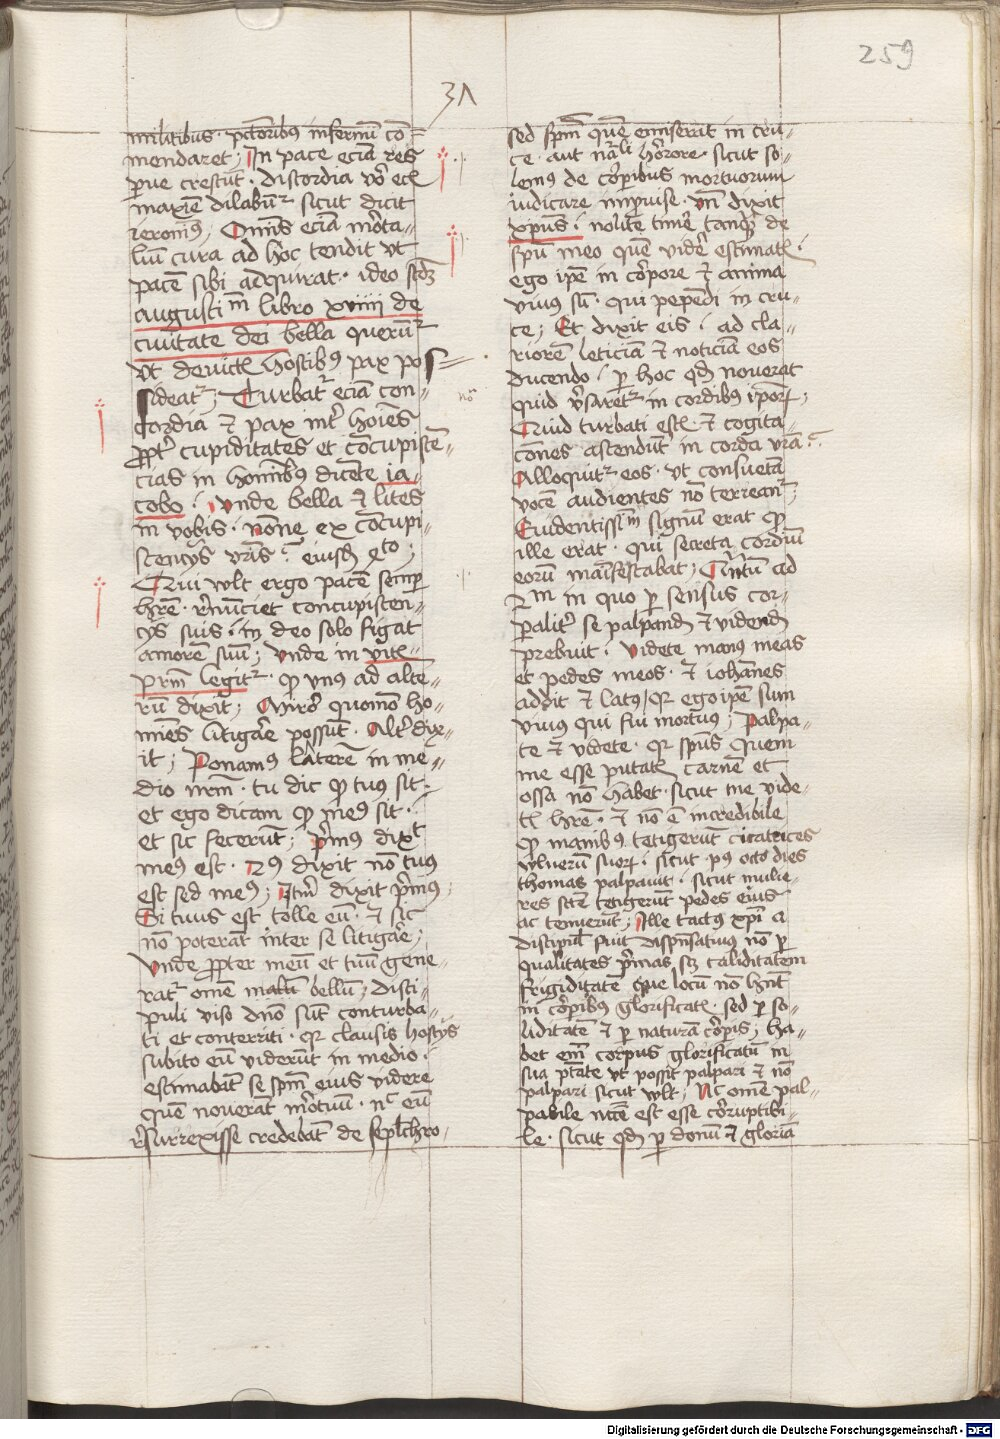 259
31
militibus · pctoribus infernu co=
mendaret; In pace ecia res
pue crescut · discordia vo ecia
maxie dilabut sicut dicit
ieronimus; Omnis ecia morta-
liu cura ad hoc tendit vt
pace sibi adquirat · ideo scdm
augustinum libro xviiii de
ciuitate dei bella querut
vt deuictis hostibus pax pos=
sideat; Turbat ecia con-
cordia et pax int hoies
ppt cupiditates et cocupisce-
cias in hominibus dicente ia-
cobo · vnde bella et lites
in vobis · nonne ex cocupi-
scencijs vris · eiusdem 4to;
Qui vult ergo pace semp
hre · renunciet concupiscen-
cijs suis · in deo solo figat
amore suu; Vnde in vitis
prm legit · qd vnus ad alte-
ru dixit; Miror quomo ho-
mies litigare possut · Alt dix-
it; Ponamus latere in me-
dio nrm · tu dic qd tuus sit ·
et ego dicam qd meus sit ·
et sic fecerut; primus dixt
meus est · 2us dixit no tuus
est sed meus; Itm dixit primus;
Si tuus est tolle eu · et sic
no poterat inter se litigare;
Vnde ppter meu et tuu gene-
rat ome malu bellu; disci-
puli viso dno sut conturba-
ti et conterriti · qr clausis hostijs
subito eu viderut in medio ·
estimabat se spm eius videre
que nouerat mortuu · nc eu
resurrexisse credebat de seplchro ·
sed spm que emiserit in cru-
ce · aut nali horrore · sicut so-
lemus de corporibus mortuorum
iudicare impuise · vn dixit
xpus · nolite timere tamquam de
spu meo que videre estimatis ·
ego ipe in corpore et anima
viuus su · qui pependi in cru-
ce; Et dixit eis · ad cla-
riore leticia et noticia eos
ducendo · p hoc qd nouerat
quid versaret in cordibus ipor;
Quid turbati estis et cogita-
cones ascendut in corda vra ·
Alloquit eos · vt consueta
voce audientes no terreant;
Euidentissimu signu erat qd
ille erat · qui secreta cordiu
eoru manifestabat; Quantu ad
2m in quo p sensus cor-
palit se palpandu et videndu
prebuit · Videte manus meas
et pedes meos · et iohannes
addit et latus · qr ego ipe sum
viuus qui fui mortuus; Palpa-
te et videte · qr spus quem
me esse putatis carne et
ossa no habet · sicut me vide-
tis hre · et no e incredibile
qd manibus tetigerut cicatrices
vulneru suor · sicut pus octo dies
thomas palpauit · sicut mulie-
res scte tetigerut pedes eius
ac tenuerut; Ille tactus xpi a
discipulis fuit dispensatiuus no p
qualitates primas scz caliditatem
frigiditate que locu no hnt
in corporibus glorificatis · sed p so-
liditate et p natura corpis; ha-
bet em corpus glorificatu in
sua ptate vt possit palpari et no
palpari sicut vult; Nc ome pal-
pabile necce est esse corruptibi-
le · sicut qd p donu et gloria
Digitalisierung gefördert durch die Deutsche Forschungsgemeinschaft - DFG